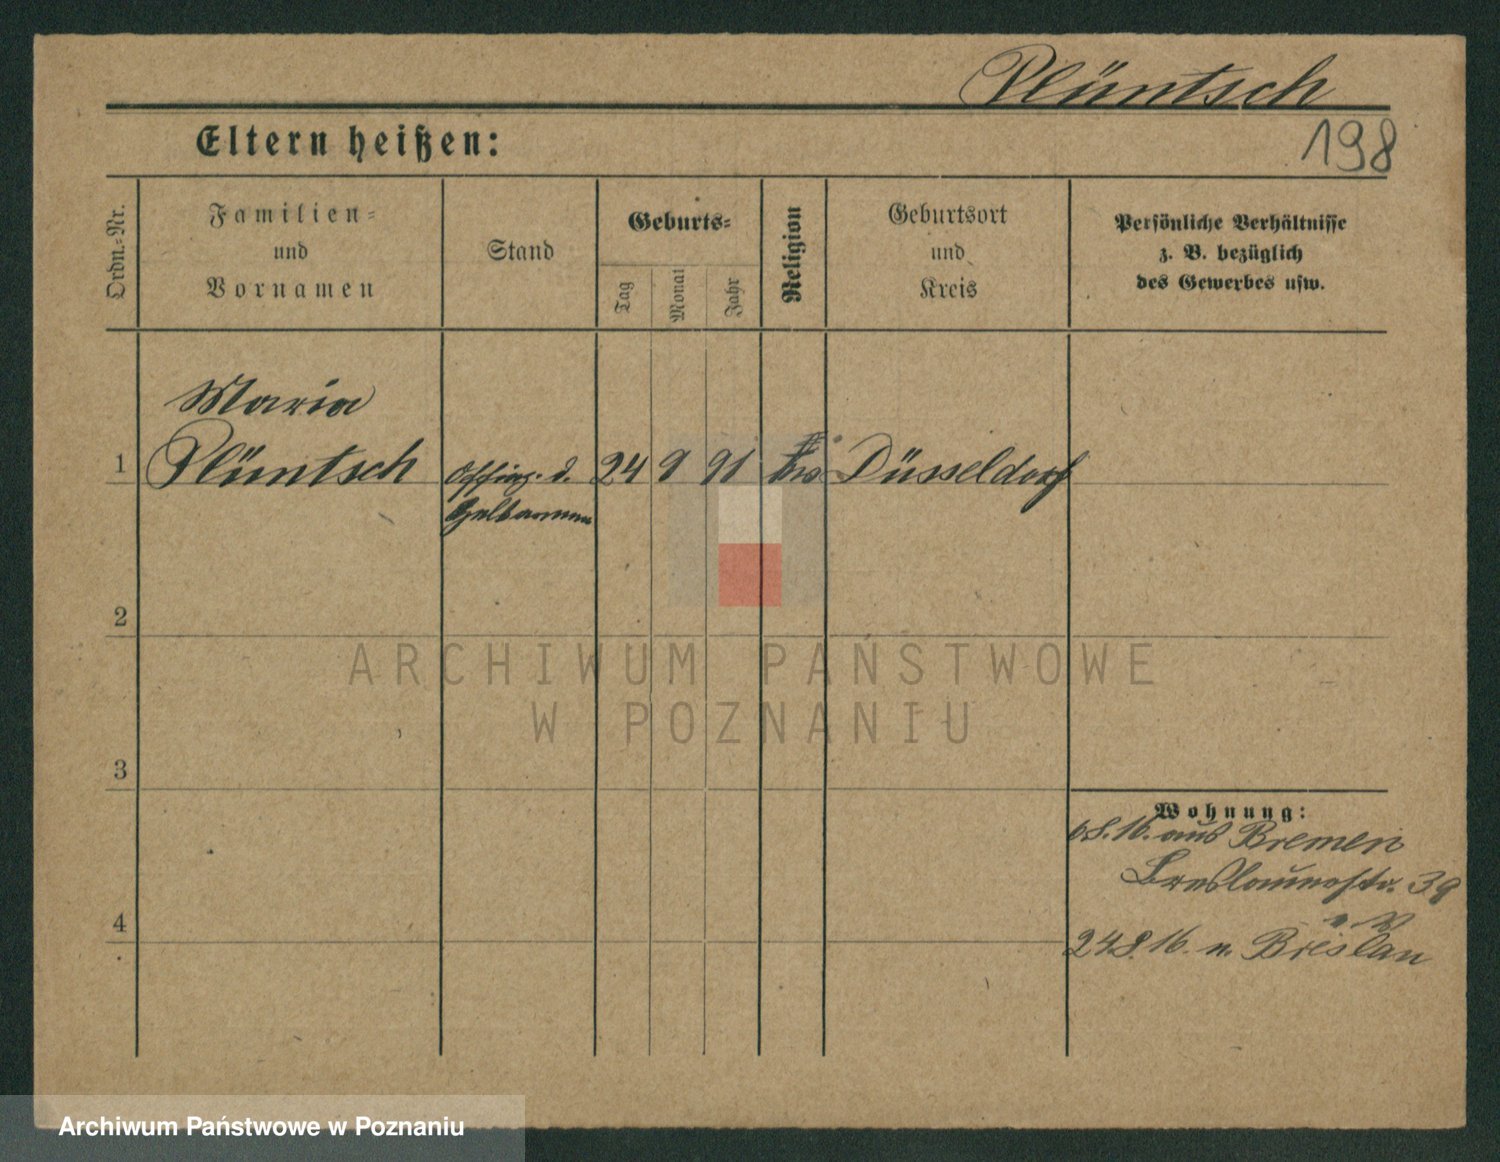 Plüntsch
198
Eltern heißen:
Ordn.=Nr.
Familien=
und
Vornamen
Stand
Geburts=
Tag
Monat
Jahr
Religion
Geburtsort
und
Kreis
Persönliche Verhältnisse
z. B. bezüglich
des Gewerbes usw.
Maria
1 Plüntsch 24 9 91 Düsseldorf
2
3
4
Wohnung:
6.8.16. aus Bremen
Breslauerstr. 39
24.8.16. n. Breslau
ARCHIWUM PAŃSTWOWE
W POZNANIU
Archiwum Państwowe w Poznaniu